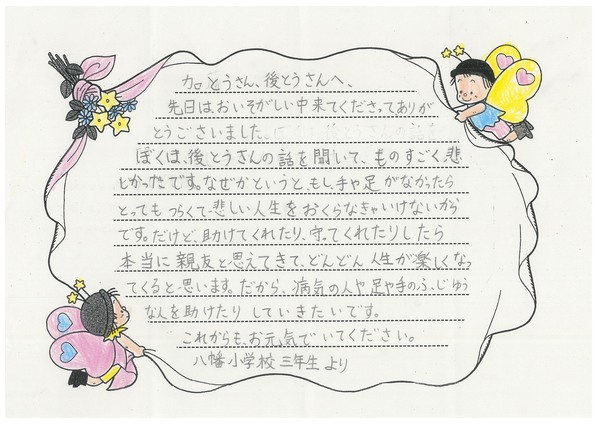 加とうさん、後とうさんへ、
先日は、おいそがしい中来てくださってありが
とうごさいました。
ぼくは、後とうさんの話を聞いて、ものすごく悲
しかったです。なぜかというと、もし、手や足がなかったら
とってもつらくて悲しい人生をおくらなきゃいけないから
です。だけど、助けてくれたり、守ってくれたりしたら
本当に親友と思えてきて、どんどん人生が楽しくなっ
てくると思います。だから、病気の人や足や手のふじゆう
な人を助けたりしていきたいです。
これからも、お元気でいてください。
八幡小学校三年生より